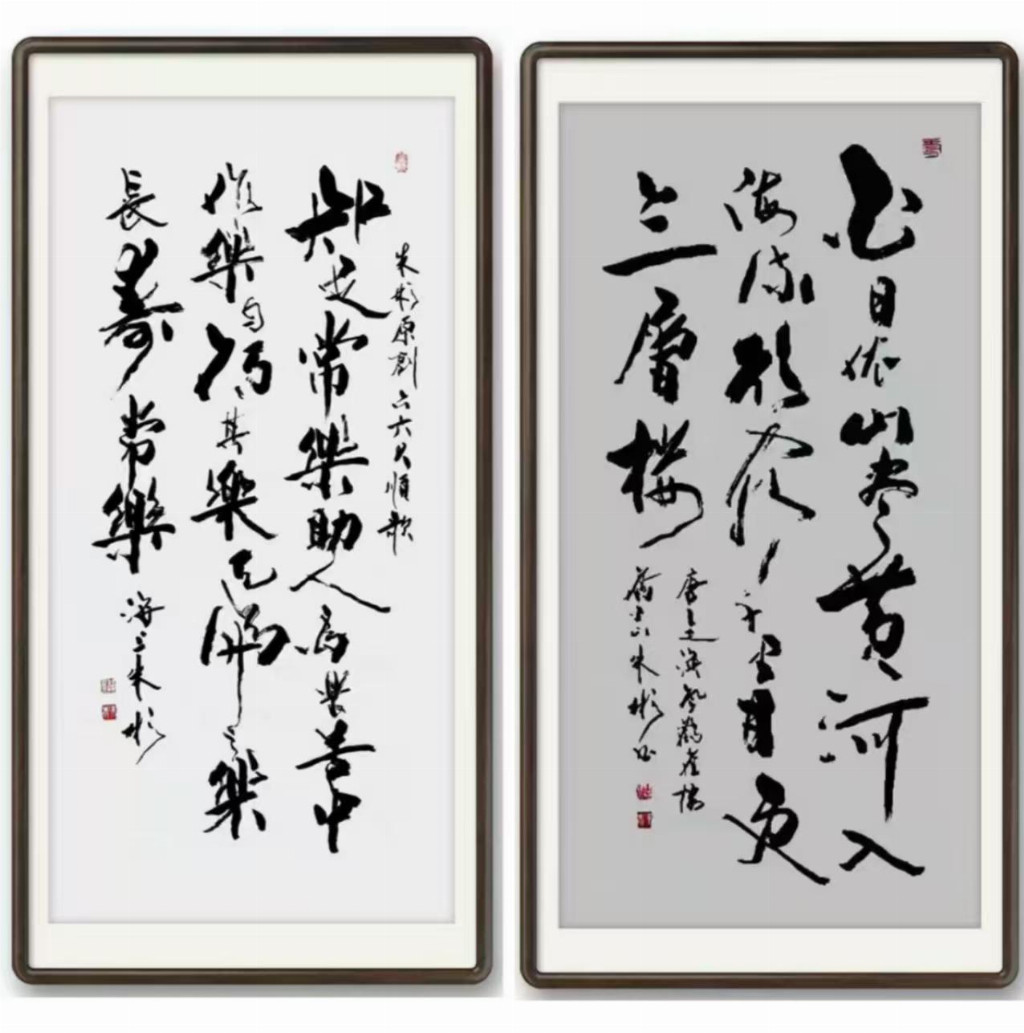 朱彬原創六六大順歌
知足常樂助人為樂苦中
作樂自得其樂天倫之樂
長壽常樂
海上朱彬
白日依山尽黄河入
海流欲窮千里目更
上一層樓
唐王之渙登鸛雀樓
朱彬书